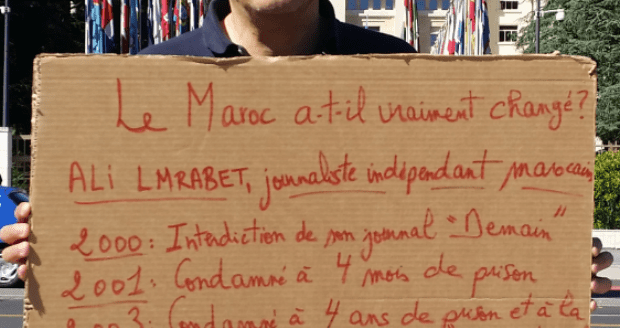 Le Maroc a-t-il vraiment changé?
ALI LMRABET, journaliste indépendant marocain
2000: Interdiction de mon journal "Demain"
2001: Condamné à 4 mois de prison
2003: Condamné à 4 ans de prison et à la